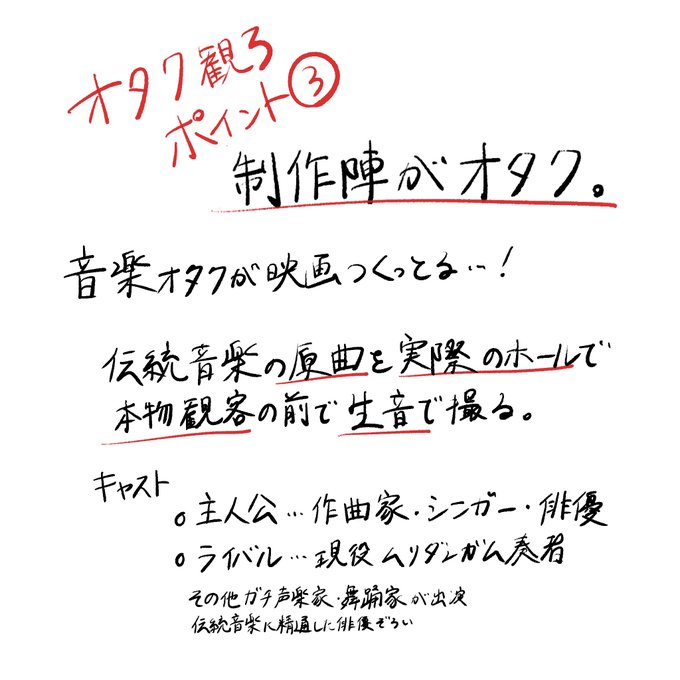 オタク観ろ
ポイント③
制作陣がオタク。
音楽オタクが映画つくっとる…!
伝統音楽の原曲を実際のホールで
本物観客の前で生音で撮る。
キャスト
○主人公…作曲家・シンガー・俳優
○ライバル…現役ムリダンガム奏者
その他ガチ声楽家・舞踊家が出演
伝統音楽に精通した俳優ぞろい